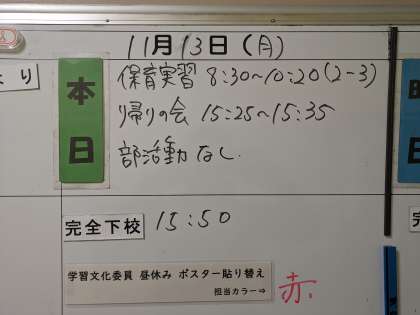 11月13日(月)
より
本日
保育実習 8:30~10:20(2-3)
帰りの会 15:25~15:35
部活動 なし.
完全下校 15:50
学習文化委員 昼休み ポスター貼り替え
担当カラー⇒ 赤.